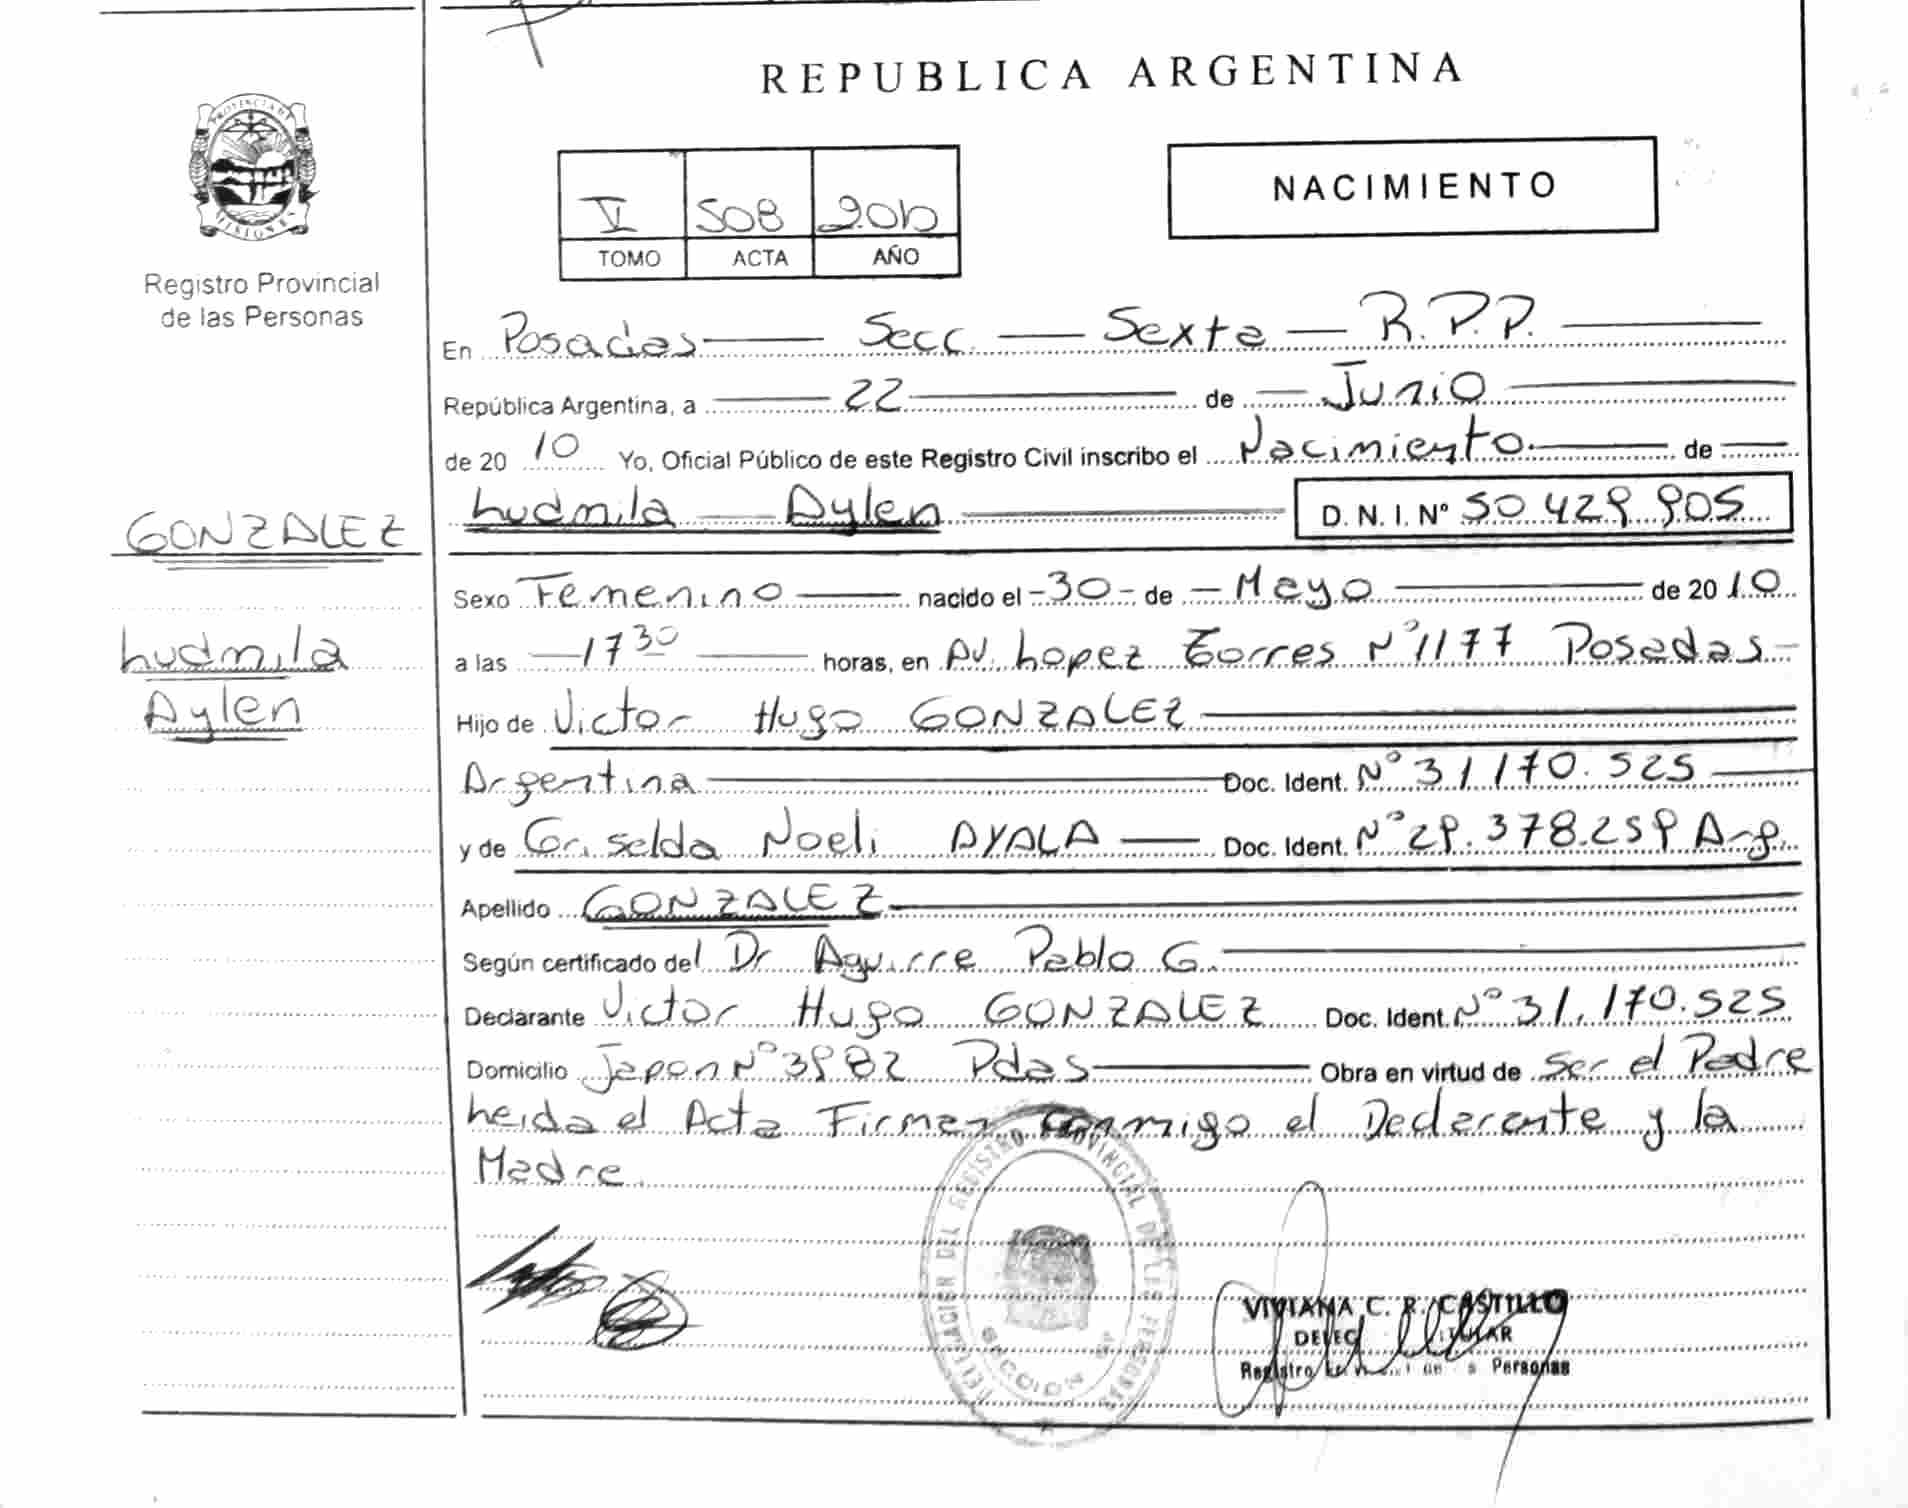 REPUBLICA ARGENTINA
PROVINCIA DE MISIONES
Registro Provincial
de las Personas
V 508 2010
TOMO ACTA AÑO
NACIMIENTO
En Posadas Secc. Sexta R.P.P.
República Argentina, a 22 de Junio
de 2010 Yo, Oficial Público de este Registro Civil inscribo el Nacimiento de
Ludmila Aylen D. N. I. Nº 50 429 905
GONZALEZ
Ludmila
Aylen
Sexo Femenino nacido el -30- de Mayo de 2010
a las 17 30 horas, en Av. Lopez Torres Nº 1177 Posadas
Hijo de Victor Hugo GONZALEZ
Argentina Doc. Ident. Nº 31.170.525
y de Griselda Noeli AYALA Doc. Ident. Nº 29.378.259 Arg.
Apellido GONZALEZ
Según certificado del Dr Aguirre Pablo G.
Declarante Victor Hugo GONZALEZ Doc. Ident. Nº 31.170.525
Domicilio Japon Nº 3982 Pdas Obra en virtud de ser el Padre
heida el Acta Firman conmigo el Declarante y la
Madre.
DELEGACION DEL REGISTRO PROVINCIAL DE LAS PERSONAS
SECCION 6ª
VIVIANA C. R. CASTILLO
DELEG TITULAR
Registro Personas